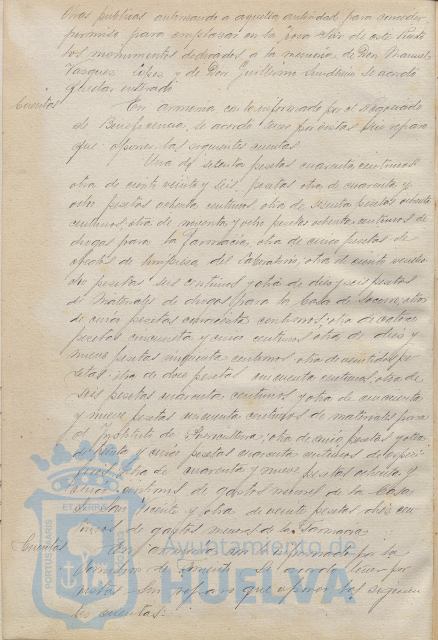 Obras públicas autorizando a aquella autoridad para conceder
permiso para emplazar en la zona Sur de este Puerto
los monumentos dedicados a la memoria de Don Manuel
Vazquez Lopez y de Don Guillermo Sundheim se acordó
quedar enterado
Cuentas En armonia con lo informado por el Negociado
de Beneficencia, se acordó tener por vistas sin reparo
que oponer las siguientes cuentas
Una de sesenta pesetas cuarenta centimos
otra de ciento veinte y seis pesetas otra de cuarenta y
ocho pesetas ochenta centimos otra de sesenta pesetas
centimos, otra de noventa y ocho pesetas ochenta centimos de
drogas para la Farmacia, otra de cinco pesetas de
efectos de limpieza del Laboratorio; otra de ciento
ocho pesetas seis centimos y otra de diez y seis pesetas
de materiales de drogas para la Casa de Socorro, otra
de cinco pesetas cincuenta centimos; otra de catorce
pesetas cincuenta y cinco centimos otra de diez y
nueve pesetas cincuenta centimos, otra de veintidos pe-
setas; otra de doce pesetas cincuenta centimos, otra de
seis pesetas cuarenta centimos y otra de cincuenta
y nueve pesetas cincuenta centimos de materiales para
el Instituto de Puericultura; otra de cinco pesetas y otra
de treinta y cinco pesetas cuarenta centimos de
otra de cuarenta y nueve pesetas ochenta y
cinco centimos de gastos menores de la Casa
de y otra de veinte pesetas diez cen-
timos de gastos menores de la Farmacia
Cuentas En armonia con lo informado por la
Comision de Fomento se acordó tener por
vistas sin reparo que oponer las siguien-
tes cuentas:
PORTUS MARIS
ET TERRE
Ayuntamiento de
HUELVA